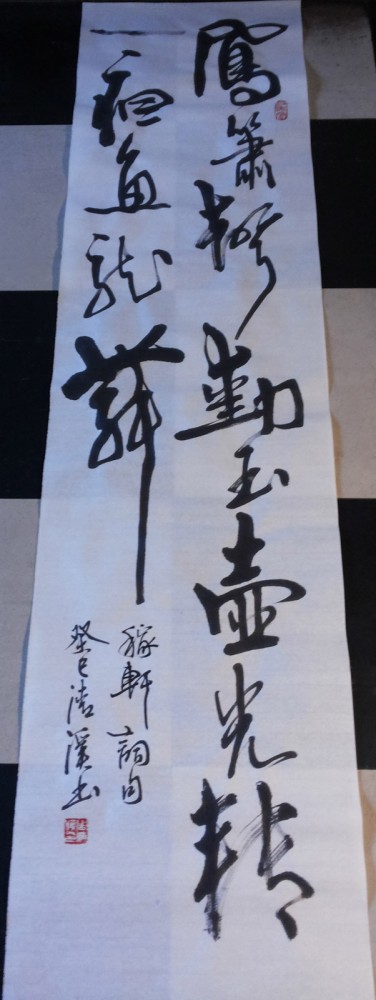 鳳簫聲動玉壺光轉
一夜魚龍舞
稼軒詞句
癸巳溪书